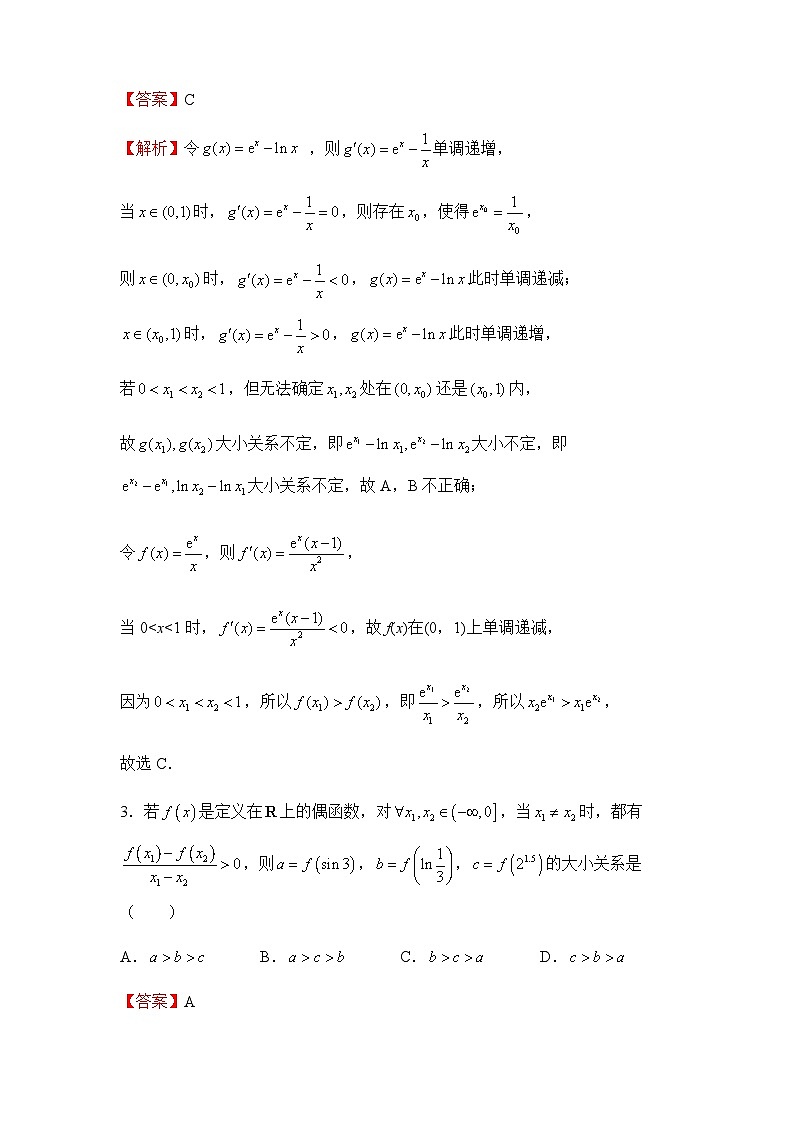 【答案】C
【解析】令 g(x) = eˣ − ln x ，则 g′(x) = eˣ − 1/x 单调递增，
当 x ∈ (0,1) 时， g′(x) = eˣ − 1/x = 0，则存在 x₀，使得 e^{x₀} = 1/x₀，
则 x ∈ (0, x₀) 时， g′(x) = eˣ − 1/x < 0， g(x) = eˣ − ln x 此时单调递减；
x ∈ (x₀,1) 时， g′(x) = eˣ − 1/x > 0， g(x) = eˣ − ln x 此时单调递增，
若 0 < x₁ < x₂ < 1，但无法确定 x₁, x₂ 处在 (0, x₀) 还是 (x₀,1) 内，
故 g(x₁), g(x₂) 大小关系不定，即 e^{x₁} − ln x₁, e^{x₂} − ln x₂ 大小不定，即
e^{x₂} − e^{x₁}, ln x₂ − ln x₁ 大小关系不定，故 A，B 不正确；
令 f(x) = eˣ/x，则 f′(x) = eˣ(x−1)/x²，
当 0<x<1 时， f′(x) = eˣ(x−1)/x² < 0，故 f(x)在(0，1)上单调递减，
因为 0 < x₁ < x₂ < 1，所以 f(x₁) > f(x₂)，即 e^{x₁}/x₁ > e^{x₂}/x₂，所以 x₂e^{x₁} > x₁e^{x₂}，
故选 C．
3．若 f(x) 是定义在 R 上的偶函数，对 ∀x₁, x₂ ∈ (−∞,0]，当 x₁ ≠ x₂ 时，都有
(f(x₁)− f(x₂))/(x₁ − x₂) > 0，则 a = f(sin 3)， b = f(ln 1/3)， c = f(2^{1.5}) 的大小关系是
（　　）
A．a > b > c B．a > c > b C．b > c > a D．c > b > a
【答案】A